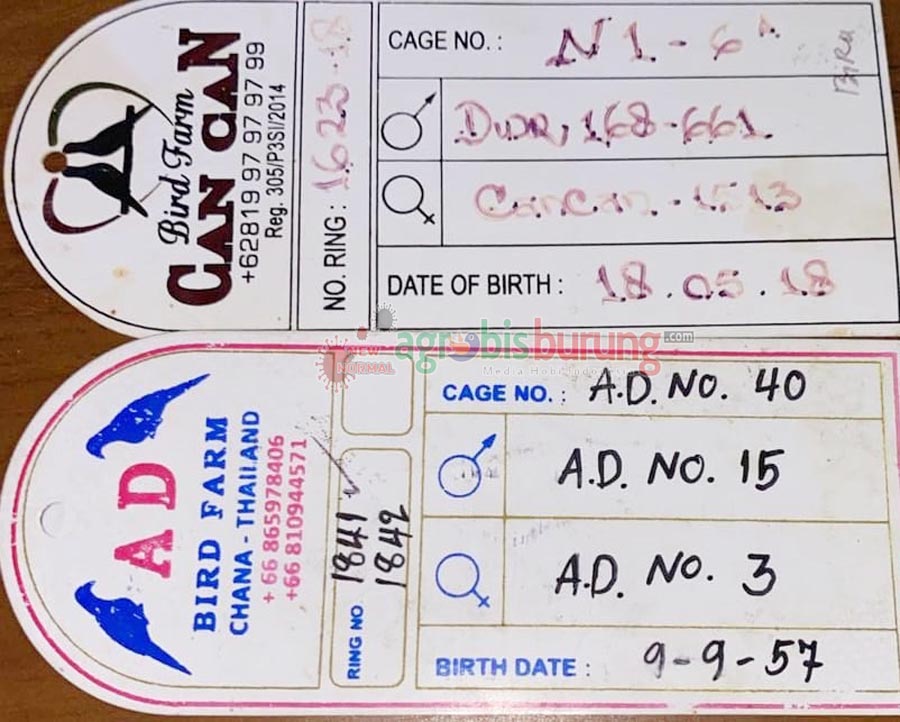 Bird Farm
CAN CAN
+62819 97 97 97 99
Reg. 305/P3SI/2014
NO. RING : 1623-18
CAGE NO. : N1-6
Biru
168-661
CanCan - 1513
DATE OF BIRTH : 18.05.18
NEW NORMAL
agrobisburung.com
Media Hobi Indonesia
AD
BIRD FARM
CHANA - THAILAND
+ 66 865978406
+66 810944571
RING NO 1841
1842
CAGE NO. : A.D. NO. 40
A.D. NO. 15
A.D. NO. 3
BIRTH DATE : 9-9-57